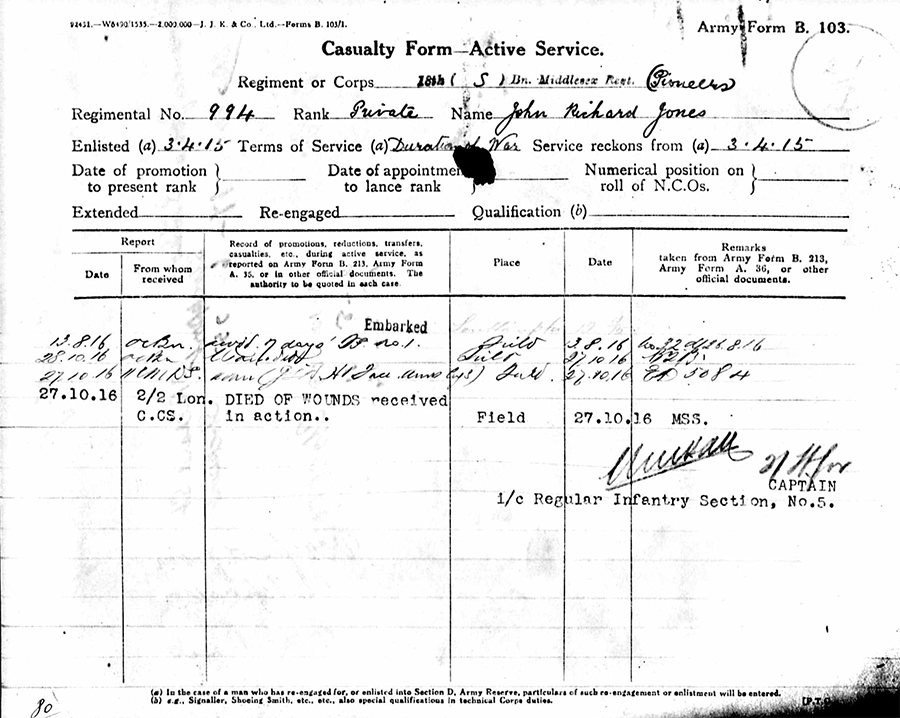 92431.—W6490/1535.—2,000,000—J. J. K. & Co., Ltd.—Forms B. 103/1.
Army Form B. 103.
Casualty Form—Active Service.
Regiment or Corps 18th ( S ) Bn. Middlesex Regt. (Pioneers)
Regimental No. 994 Rank Private Name John Richard Jones
Enlisted (a) 3.4.15 Terms of Service (a) Duration of War Service reckons from (a) 3.4.15
Date of promotion to present rank
Date of appointment to lance rank
Numerical position on roll of N.C.Os.
Extended Re-engaged Qualification (b)
Report
Date
From whom received
Record of promotions, reductions, transfers, casualties, etc., during active service, as reported on Army Form B. 213, Army Form A. 36, or in other official documents. The authority to be quoted in each case.
Place
Date
Remarks
taken from Army Form B. 213, Army Form A. 36, or other official documents.
Embarked
13.8.16 OC Bn. 7 days' F.P. No. 1. Field 3.8.16
28.10.16 OC Bn Wounded Field 27.10.16
27.10.16 Field 27.10.16 5084
27.10.16 2/2 Lon. DIED OF WOUNDS received
C.CS. in action.. Field 27.10.16 MSS.
CAPTAIN
i/c Regular Infantry Section, No.5.
(a) In the case of a man who has re-engaged for, or enlisted into Section D, Army Reserve, particulars of such re-engagement or enlistment will be entered.
(b) e.g., Signaller, Shoeing Smith, etc., etc., also special qualifications in technical Corps duties.
[P.T.
80